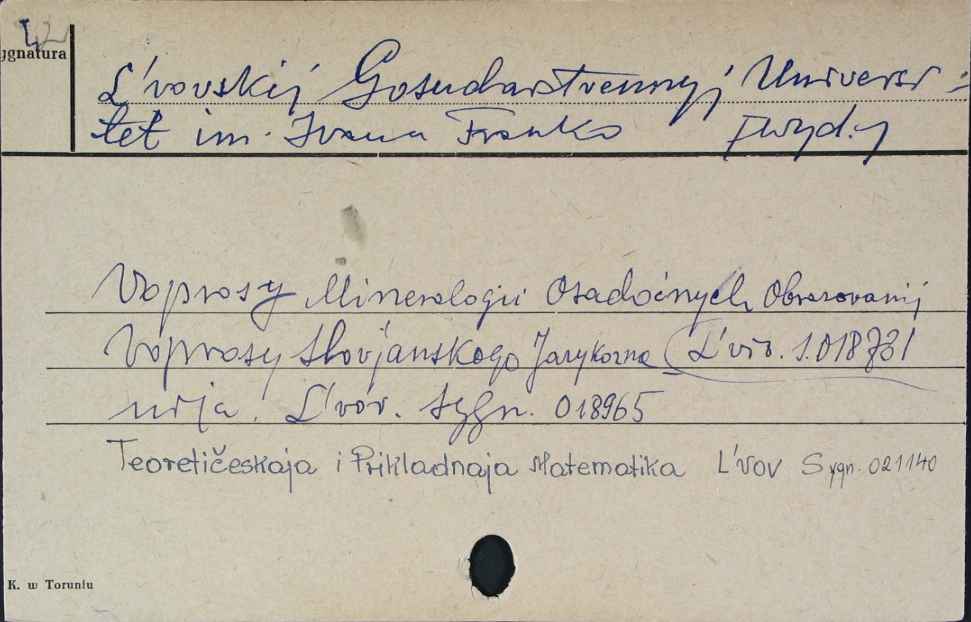 ygnatura
L'vovskij Gosudarstvennyj Universi-
tet im. Ivana Franko [wyd.]
Voprosy Mineralogii Osadočnych Obrazovanij
Voprosy Slovjanskogo Jazykozna (L'vov. S. 018731
nija. L'vov. Sygn. 018965
Teoretičeskaja i Prikladnaja Matematika L'vov Sygn. 021140
K. w Toruniu